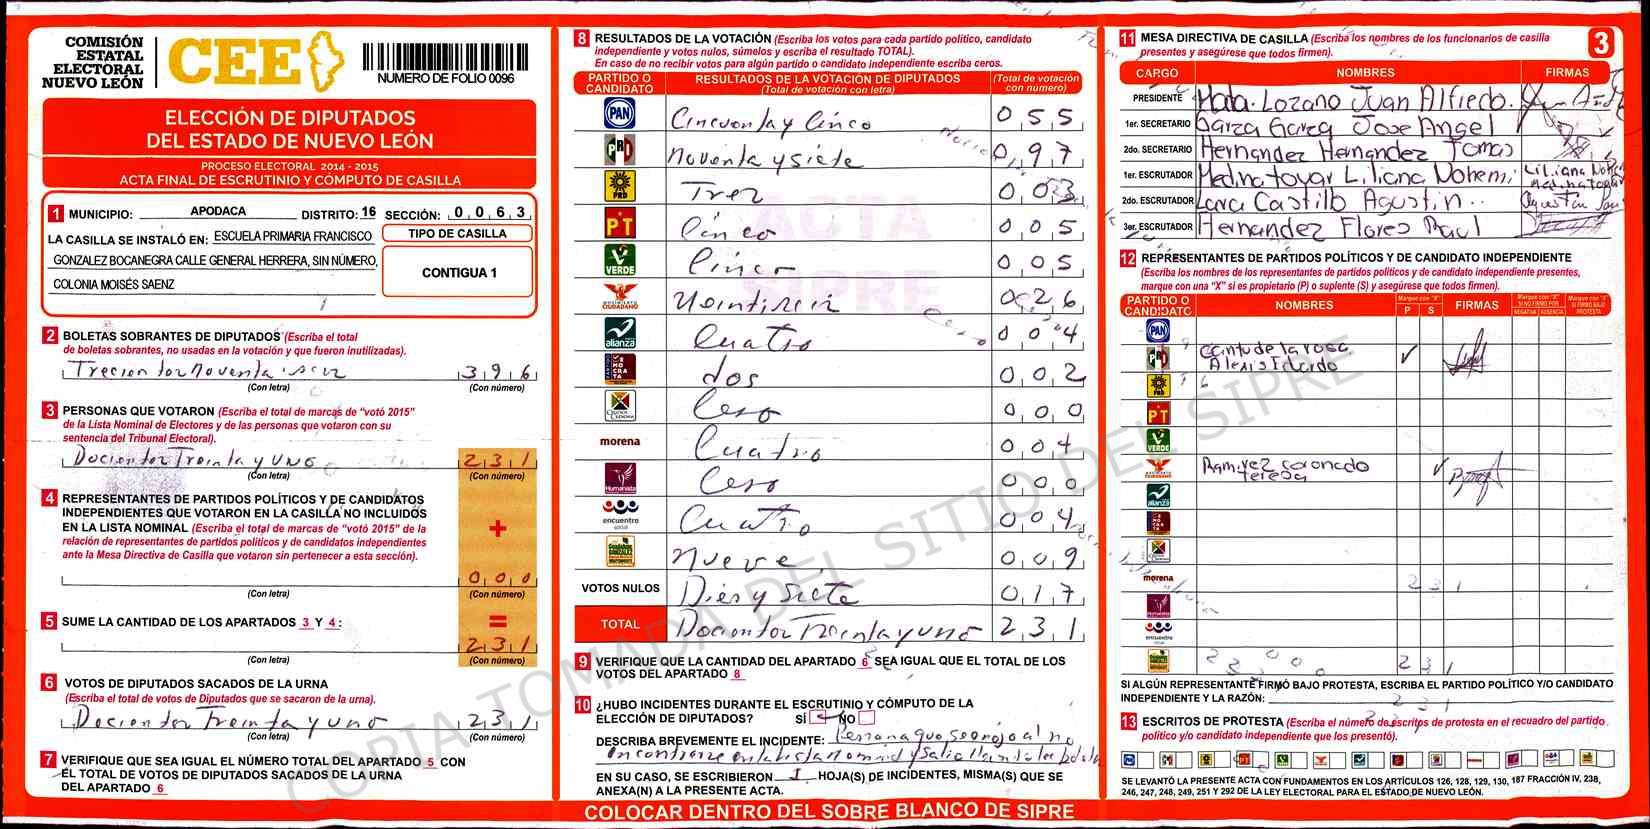 COMISIÓN
ESTATAL
ELECTORAL
NUEVO LEÓN
CEE
NUMERO DE FOLIO 0096
ELECCIÓN DE DIPUTADOS
DEL ESTADO DE NUEVO LEÓN
PROCESO ELECTORAL 2014 - 2015
ACTA FINAL DE ESCRUTINIO Y CÓMPUTO DE CASILLA
1 MUNICIPIO: APODACA DISTRITO: 16 SECCIÓN: 0 0 6 3
LA CASILLA SE INSTALÓ EN: ESCUELA PRIMARIA FRANCISCO
GONZALEZ BOCANEGRA CALLE GENERAL HERRERA, SIN NÚMERO,
COLONIA MOISÉS SAENZ
TIPO DE CASILLA
CONTIGUA 1
2 BOLETAS SOBRANTES DE DIPUTADOS (Escriba el total
de boletas sobrantes, no usadas en la votación y que fueron inutilizadas).
Trecientos noventa seis 3 9 6
(Con letra) (Con número)
3 PERSONAS QUE VOTARON (Escriba el total de marcas de "votó 2015"
de la Lista Nominal de Electores y de las personas que votaron con su
sentencia del Tribunal Electoral).
Docientos Treinta y UNO 2 3 1
(Con letra) (Con número)
4 REPRESENTANTES DE PARTIDOS POLÍTICOS Y DE CANDIDATOS
INDEPENDIENTES QUE VOTARON EN LA CASILLA NO INCLUIDOS
EN LA LISTA NOMINAL (Escriba el total de marcas de "votó 2015" de la
relación de representantes de partidos políticos y de candidatos independientes
ante la Mesa Directiva de Casilla que votaron sin pertenecer a esta sección).
+
0 0 0
(Con letra) (Con número)
5 SUME LA CANTIDAD DE LOS APARTADOS 3 Y 4:
=
2 3 1
(Con letra) (Con número)
6 VOTOS DE DIPUTADOS SACADOS DE LA URNA
(Escriba el total de votos de Diputados que se sacaron de la urna).
Docientos Treinta y uno 2 3 1
(Con letra) (Con número)
7 VERIFIQUE QUE SEA IGUAL EL NÚMERO TOTAL DEL APARTADO 5 CON
EL TOTAL DE VOTOS DE DIPUTADOS SACADOS DE LA URNA
DEL APARTADO 6
8 RESULTADOS DE LA VOTACIÓN (Escriba los votos para cada partido político, candidato
independiente y votos nulos, súmelos y escriba el resultado TOTAL).
En caso de no recibir votos para algún partido o candidato independiente escriba ceros.
PARTIDO O CANDIDATO RESULTADOS DE LA VOTACIÓN DE DIPUTADOS (Total de votación con letra) (Total de votación con número)
PAN Cincuenta y Cinco 0 5 5
PRI noventa y siete 0 9 7
PRD Trez 0 0 3
PT Cinco 0 0 5
VERDE Cinco 0 0 5
MOVIMIENTO CIUDADANO Veintiseis 0 2 6
alianza Cuatro 0 0 4
DEMÓCRATA dos 0 0 2
Cero 0 0 0
morena Cuatro 0 0 4
Humanista Cero 0 0 0
encuentro social Cuatro 0 0 4
nueve 0 0 9
VOTOS NULOS Dies y Siete 0 1 7
TOTAL Docientos Treinta y uno 2 3 1
ACTA
SIPRE
9 VERIFIQUE QUE LA CANTIDAD DEL APARTADO 6 SEA IGUAL QUE EL TOTAL DE LOS
VOTOS DEL APARTADO 8
10 ¿HUBO INCIDENTES DURANTE EL ESCRUTINIO Y CÓMPUTO DE LA
ELECCIÓN DE DIPUTADOS? SÍ NO
DESCRIBA BREVEMENTE EL INCIDENTE: Persona que se enojo al no
encontrarse en la lista nominal y salio
EN SU CASO, SE ESCRIBIERON 1 HOJA(S) DE INCIDENTES, MISMA(S) QUE SE
ANEXA(N) A LA PRESENTE ACTA.
COLOCAR DENTRO DEL SOBRE BLANCO DE SIPRE
11 MESA DIRECTIVA DE CASILLA (Escriba los nombres de los funcionarios de casilla
presentes y asegúrese que todos firmen).
3
CARGO NOMBRES FIRMAS
PRESIDENTE Mata Lozano Juan Alfredo
1er. SECRETARIO Garza Garza Jose Angel
2do. SECRETARIO Hernandez Hernandez Tomas
1er. ESCRUTADOR Medina tovar Liliana Nohemi
2do. ESCRUTADOR Lara Castillo Agustin
3er. ESCRUTADOR Hernandez Flores Raul
12 REPRESENTANTES DE PARTIDOS POLÍTICOS Y DE CANDIDATO INDEPENDIENTE
(Escriba los nombres de los representantes de partidos políticos y de candidato independiente presentes,
marque con una "X" si es propietario (P) o suplente (S) y asegúrese que todos firmen).
PARTIDO O CANDIDATO NOMBRES Marque con "X" P S FIRMAS Marque con "X" SI NO FIRMÓ POR NEGATIVA AUSENCIA Marque con "X" SI FIRMÓ BAJO PROTESTA
PAN
PRI Cantu de la rosa
Alexis Eduardo
PRD
PT
VERDE
Ramirez coronado
teresa
alianza
morena
Humanista
encuentro social
SI ALGÚN REPRESENTANTE FIRMÓ BAJO PROTESTA, ESCRIBA EL PARTIDO POLÍTICO Y/O CANDIDATO
INDEPENDIENTE Y LA RAZÓN:
13 ESCRITOS DE PROTESTA (Escriba el número de escritos de protesta en el recuadro del partido
político y/o candidato independiente que los presentó).
SE LEVANTÓ LA PRESENTE ACTA CON FUNDAMENTOS EN LOS ARTÍCULOS 126, 128, 129, 130, 187 FRACCIÓN IV, 238,
246, 247, 248, 249, 251 Y 292 DE LA LEY ELECTORAL PARA EL ESTADO DE NUEVO LEÓN.
COPIA TOMADA DEL SITIO DEL SIPRE